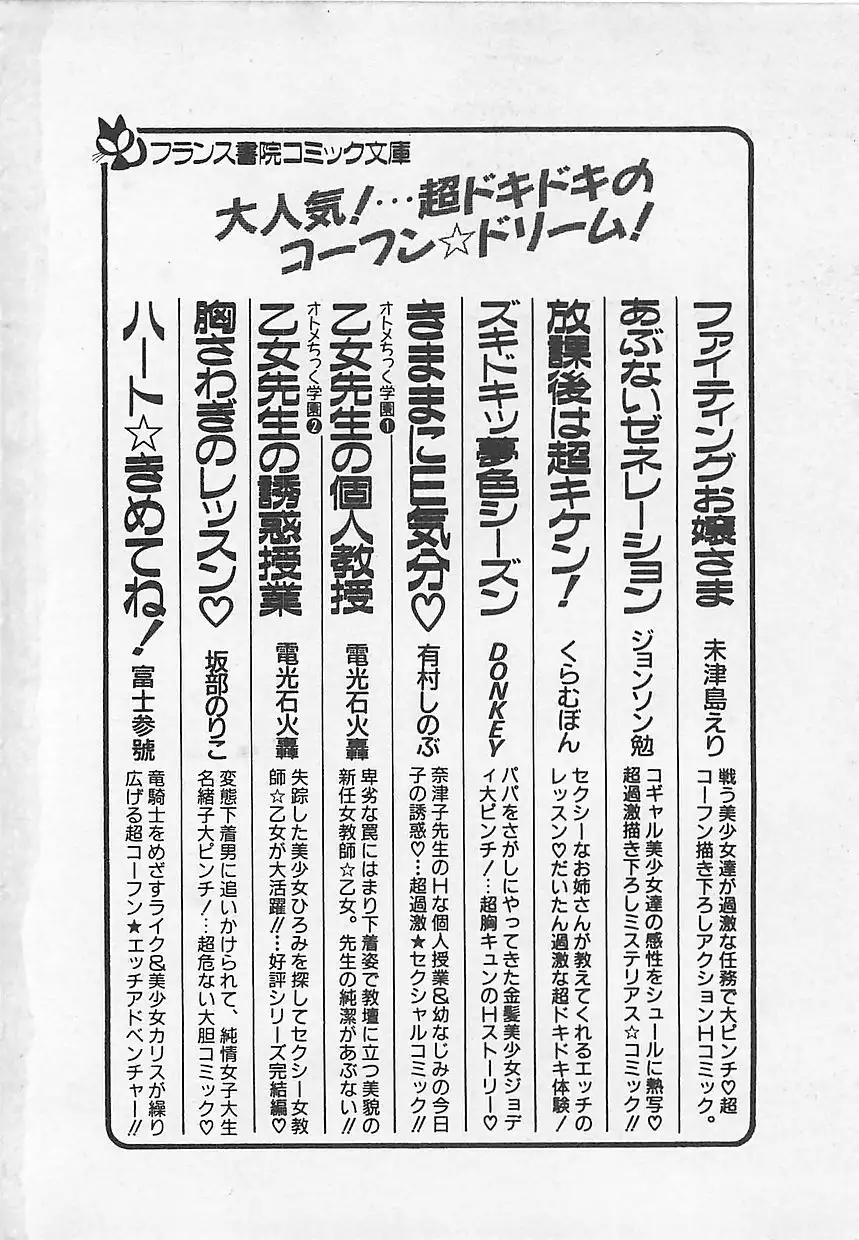 フランス書院コミック文庫
大人気！…超ドキドキの
コーフン☆ドリーム！
ファイティングお嬢さま
未津島えり
戦う美少女達が過激な任務で大ピンチ♡超
コーフン描き下ろしアクションHコミック。
あぶないゼネレーション
ジョンソン勉
コギャル美少女達の感性をシュールに熱写♡
超過激描き下ろしミステリアス☆コミック!!
放課後は超キケン！
くらむぼん
セクシーなお姉さんが教えてくれるエッチの
レッスン♡だいたん過激な超ドキドキ体験！
ズキドキッ夢色シーズン
DONKEY
パパをさがしにやってきた金髪美少女ジョデ
ィ大ピンチ！…超胸キュンのHストーリー♡
きままにH気分♡
有村しのぶ
奈津子先生のHな個人授業&幼なじみの今日
子の誘惑♡…超過激★セクシャルコミック!!
オトメちっく学園❶
乙女先生の個人教授
電光石火轟
卑劣な罠にはまり下着姿で教壇に立つ美貌の
新任女教師☆乙女。先生の純潔があぶない!!
オトメちっく学園❷
乙女先生の誘惑授業
電光石火轟
失踪した美少女ひろみを探してセクシー女教
師☆乙女が大活躍!!…好評シリーズ完結編♡
胸さわぎのレッスン♡
坂部のりこ
変態下着男に追いかけられて、純情女子大生
名緒子大ピンチ！…超危ない大胆コミック♡
ハート☆きめてね！
富士参號
竜騎士をめざすライク&美少女カリスが繰り
広げる超コーフン★エッチアドベンチャー!!